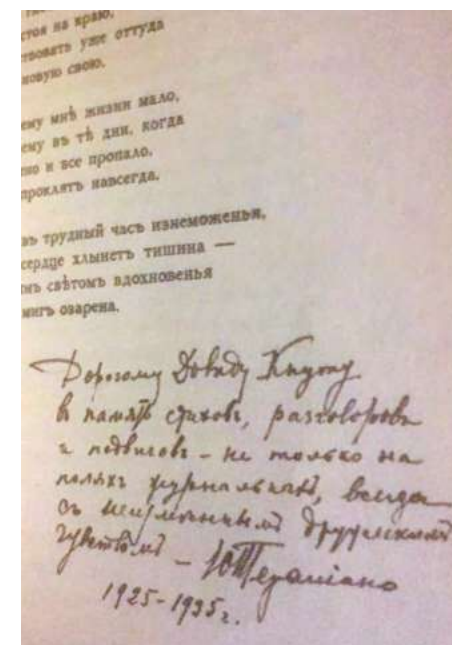 тоя на краю,
твовать уже оттуда
новую свою.
ему мнѣ жизни мало,
ему въ тѣ дни, когда
но и все пропало,
проклятъ навсегда,
въ трудный часъ изнеможенья,
сердце хлынетъ тишина —
мъ свѣтомъ вдохновенья
мигъ озарена.
Дорогому Довиду Кнуту
в память стиховъ, разговоровъ
и подвиговъ – не только на
поляхъ журнальныхъ, всегда
съ неизмѣннымъ дружескимъ
чувствомъ – ЮТерапiано
1925-1935 г.